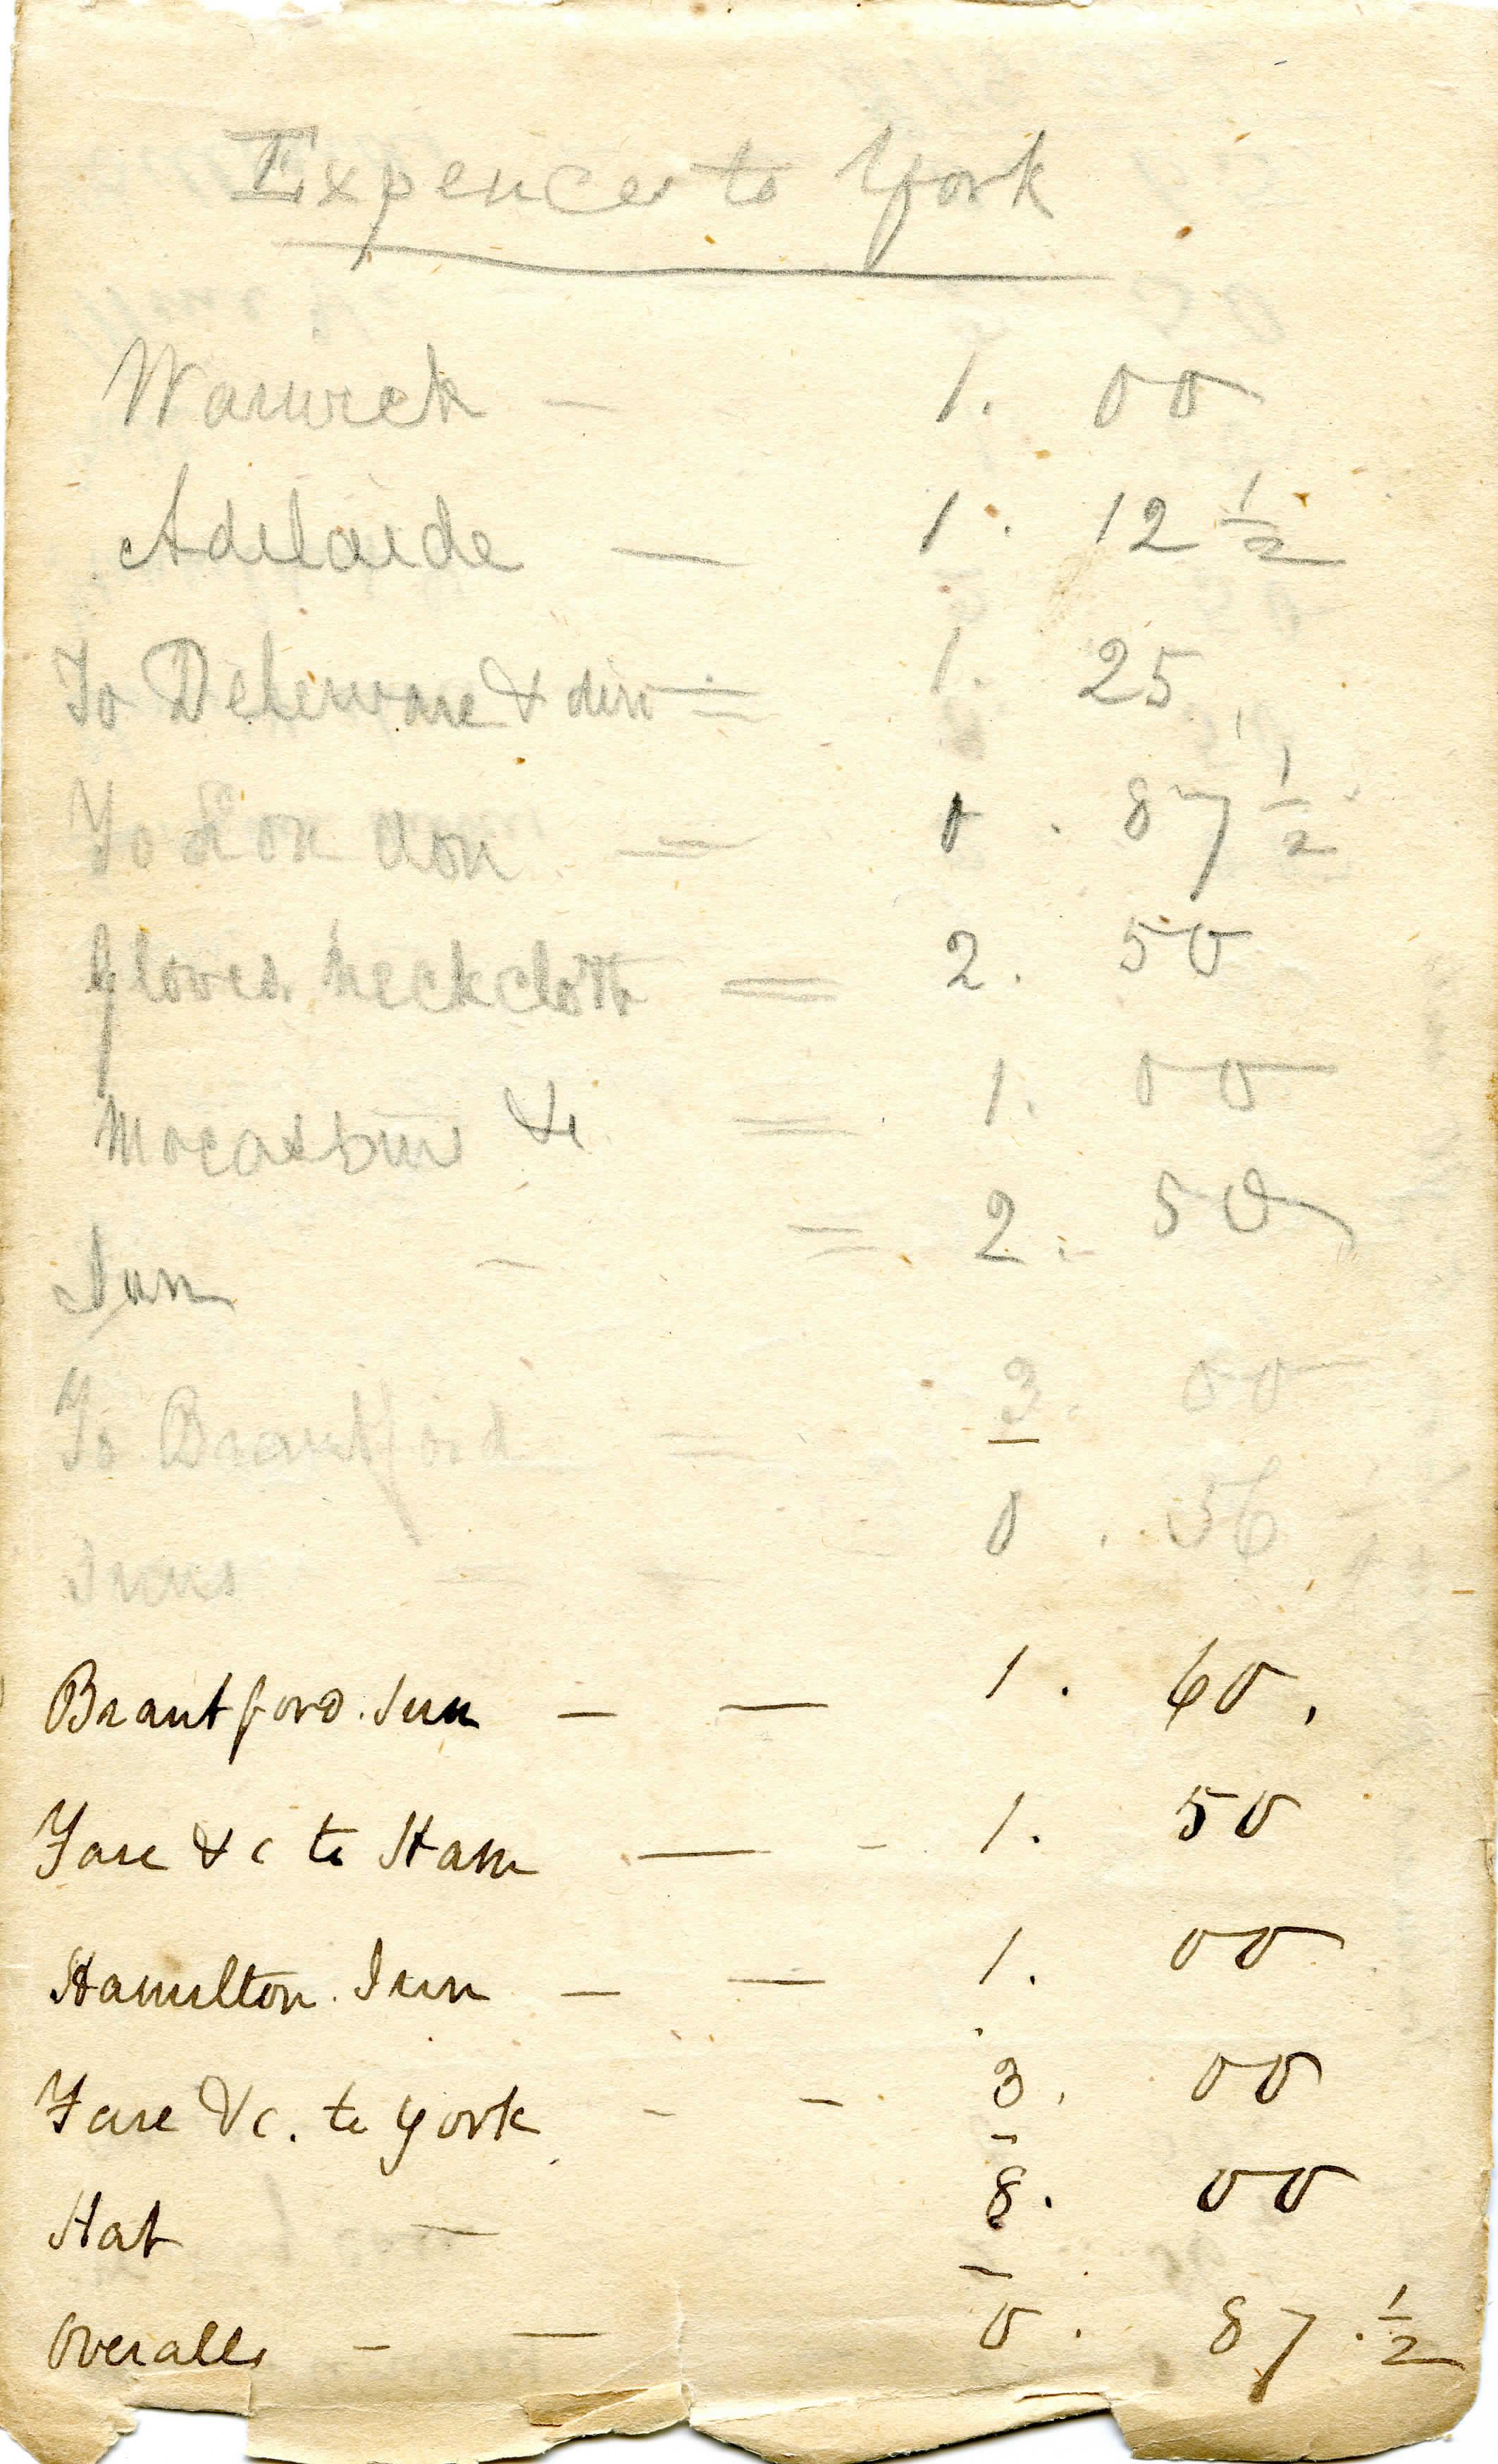 Expences to York
Warwick — 1. 00
Adelaide — 1. 12 1/2
To Delerware & din = 1. 25
To London = 0. 87 1/2
Gloves. Neckcloth = 2. 50
Mocassins &c = 1. 00
Inn — = 2. 50
To Brantford = 3. 00
Inns = = 0. 56
Brantford. Inn — — 1. 60.
Fare &c to Ham — - 1. 50
Hamilton. Inn — — 1. 00
Fare &c. to York - - 3. 00
Hat — 8. 00
Overalls - — 0. 87. 1/2